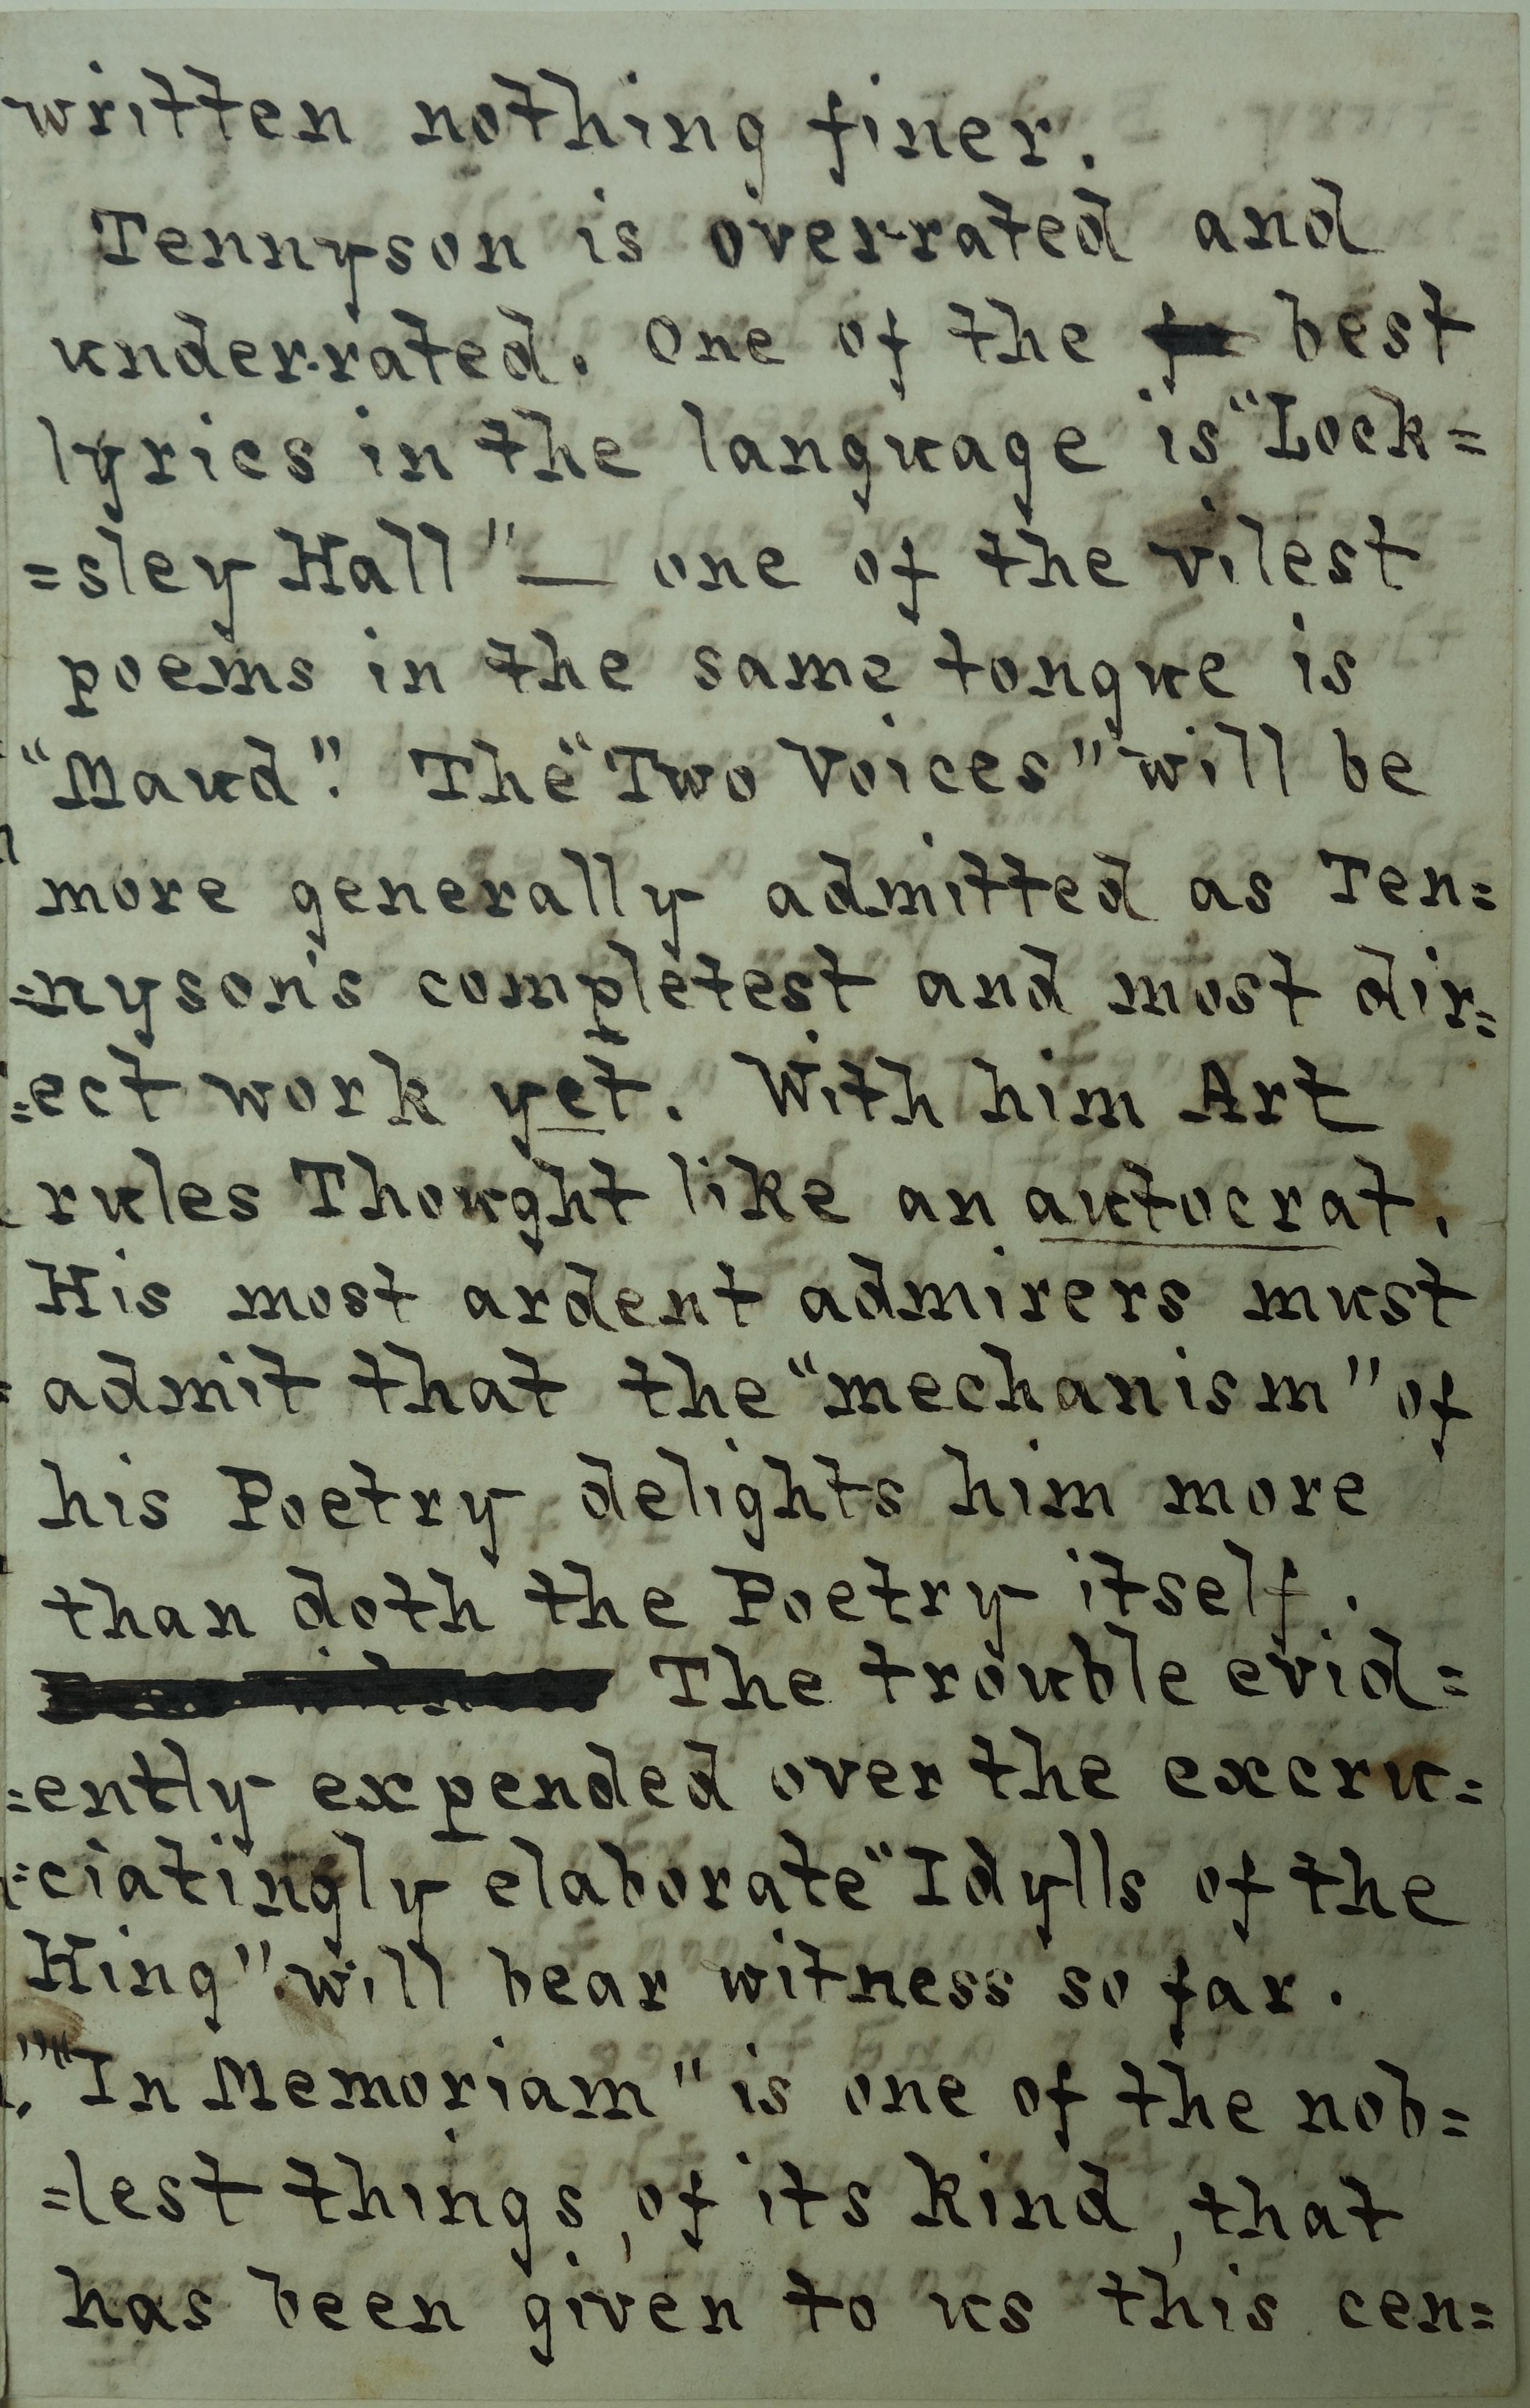 written nothing finer.
Tennyson is over-rated and
under-rated. One of the best
lyrics in the language is "Lock=
=sley Hall" — one of the vilest
poems in the same tongue is
"Maud". The "Two Voices" will be
more generally admitted as Ten=
=nyson's completest and most dir=
=ect work yet. With him Art
rules Thought like an autocrat.
His most ardent admirers must
admit that the "mechanism" of
his Poetry delights him more
than doth the Poetry itself.
The trouble evid=
=ently expended over the excru=
=ciatingly elaborate "Idylls of the
King" will bear witness so far.
"In Memoriam" is one of the nob=
=lest things, of its kind, that
has been given to us this cen=